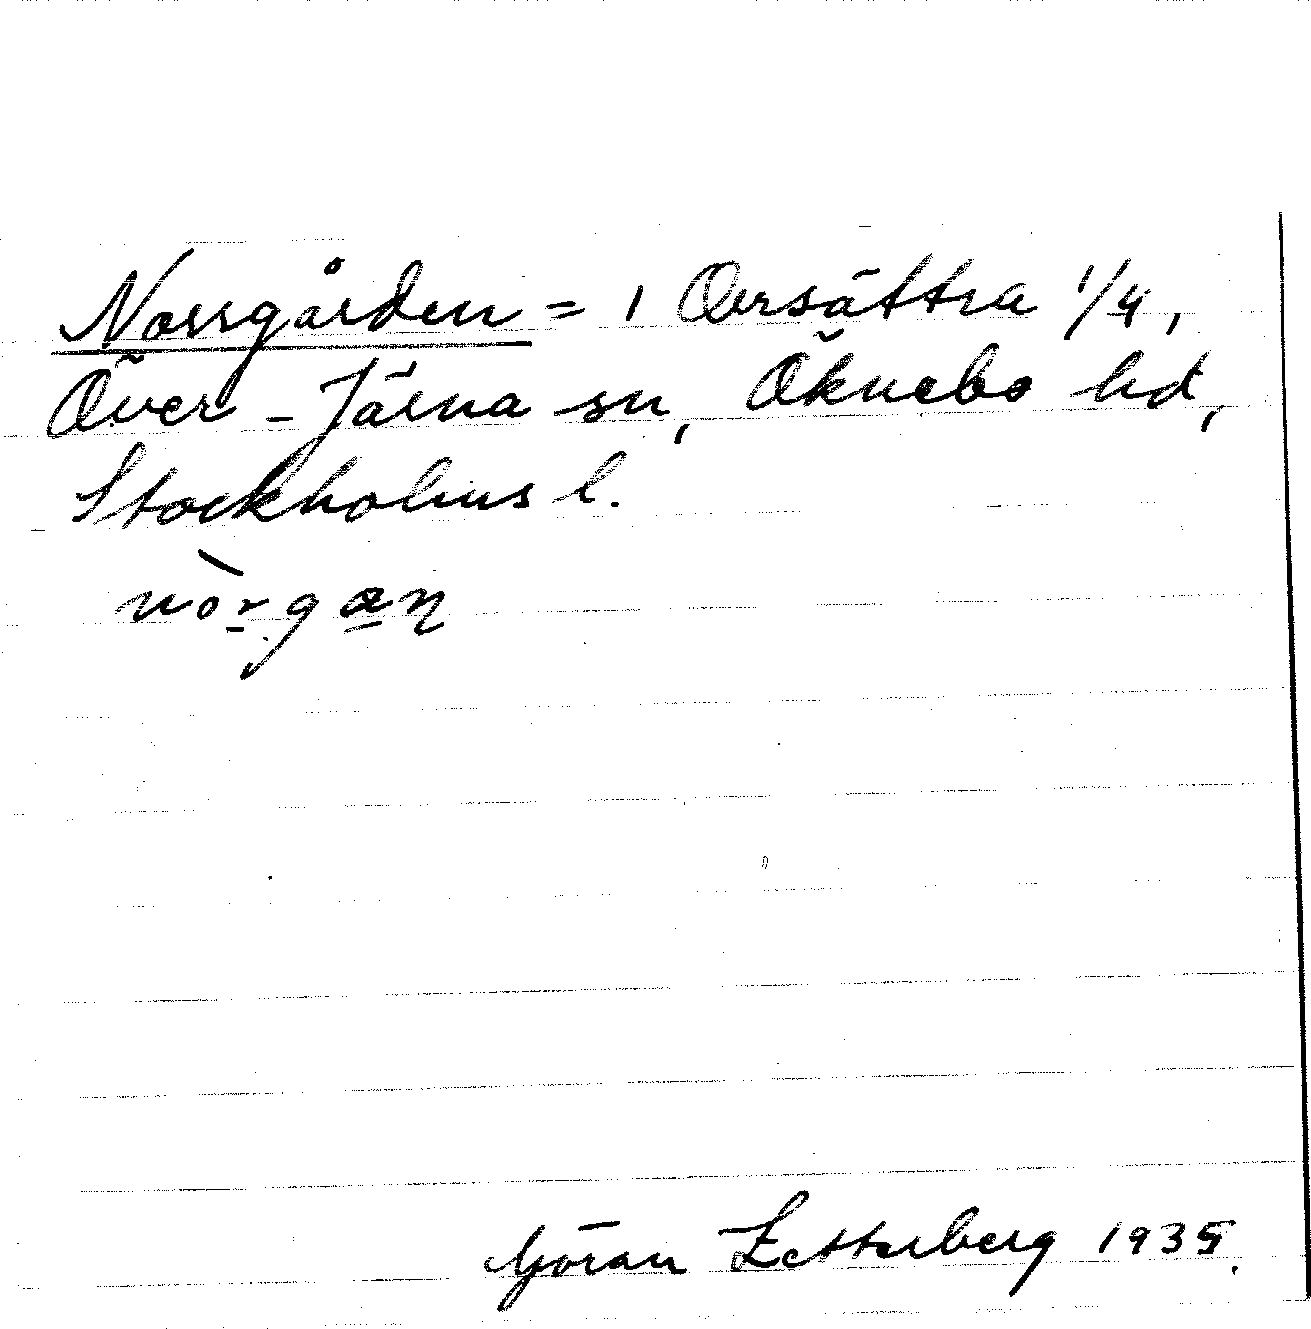 Norrgården = 1 Oversättra 1/4,
Över-Järna sn, Öknebo hd,
Stockholms l.
nòrgan
Göran Zetterberg 1935.